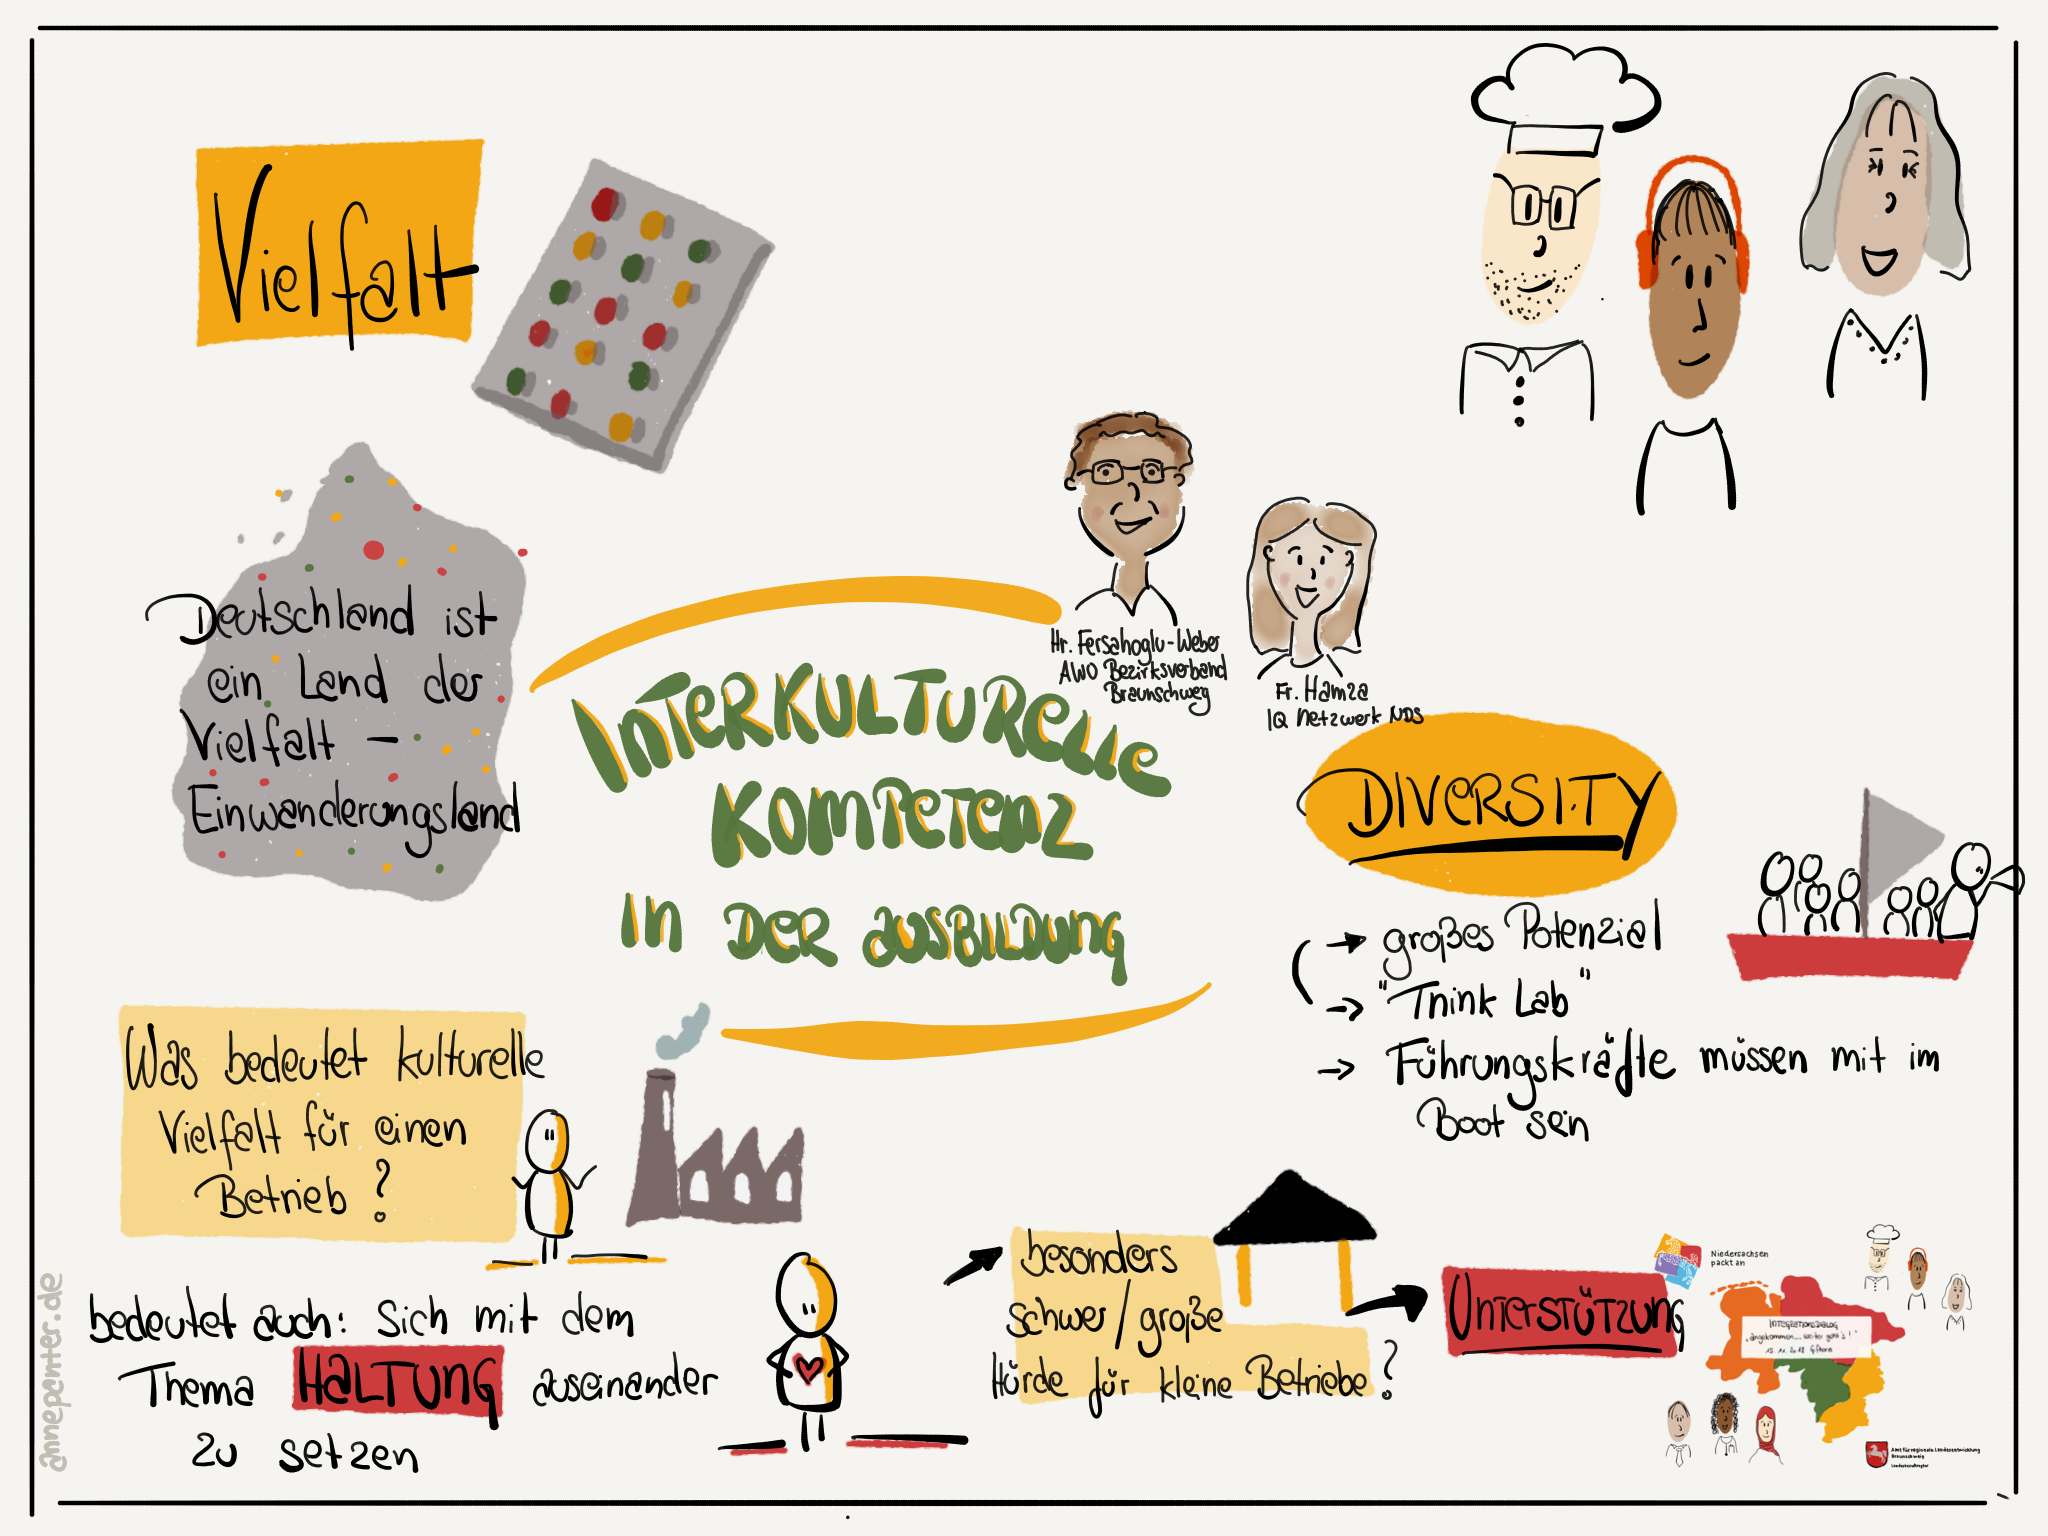 Vielfalt
Deutschland ist
ein Land der
Vielfalt –
Einwanderungsland
Hr. Fersahoglu-Weber
AWO Bezirksverband
Braunschweig
Fr. Hamza
IQ Netzwerk NDS
INTERKULTURELLE
KOMPETENZ
IN DER AUSBILDUNG
DIVERSITY
→ großes Potenzial
→ "Think Lab"
→ Führungskräfte müssen mit im
Boot sein
Was bedeutet kulturelle
Vielfalt für einen
Betrieb?
bedeutet auch: Sich mit dem
Thema HALTUNG auseinander
zu setzen
besonders
schwer/große
Hürde für kleine Betriebe?
UNTERSTÜTZUNG
Niedersachsen
packt an
INTEGRATIONSDIALOG
"angekommen... weiter geht's!"
Gifhorn
Amt für regionale Landesentwicklung
Braunschweig
annepenter.de